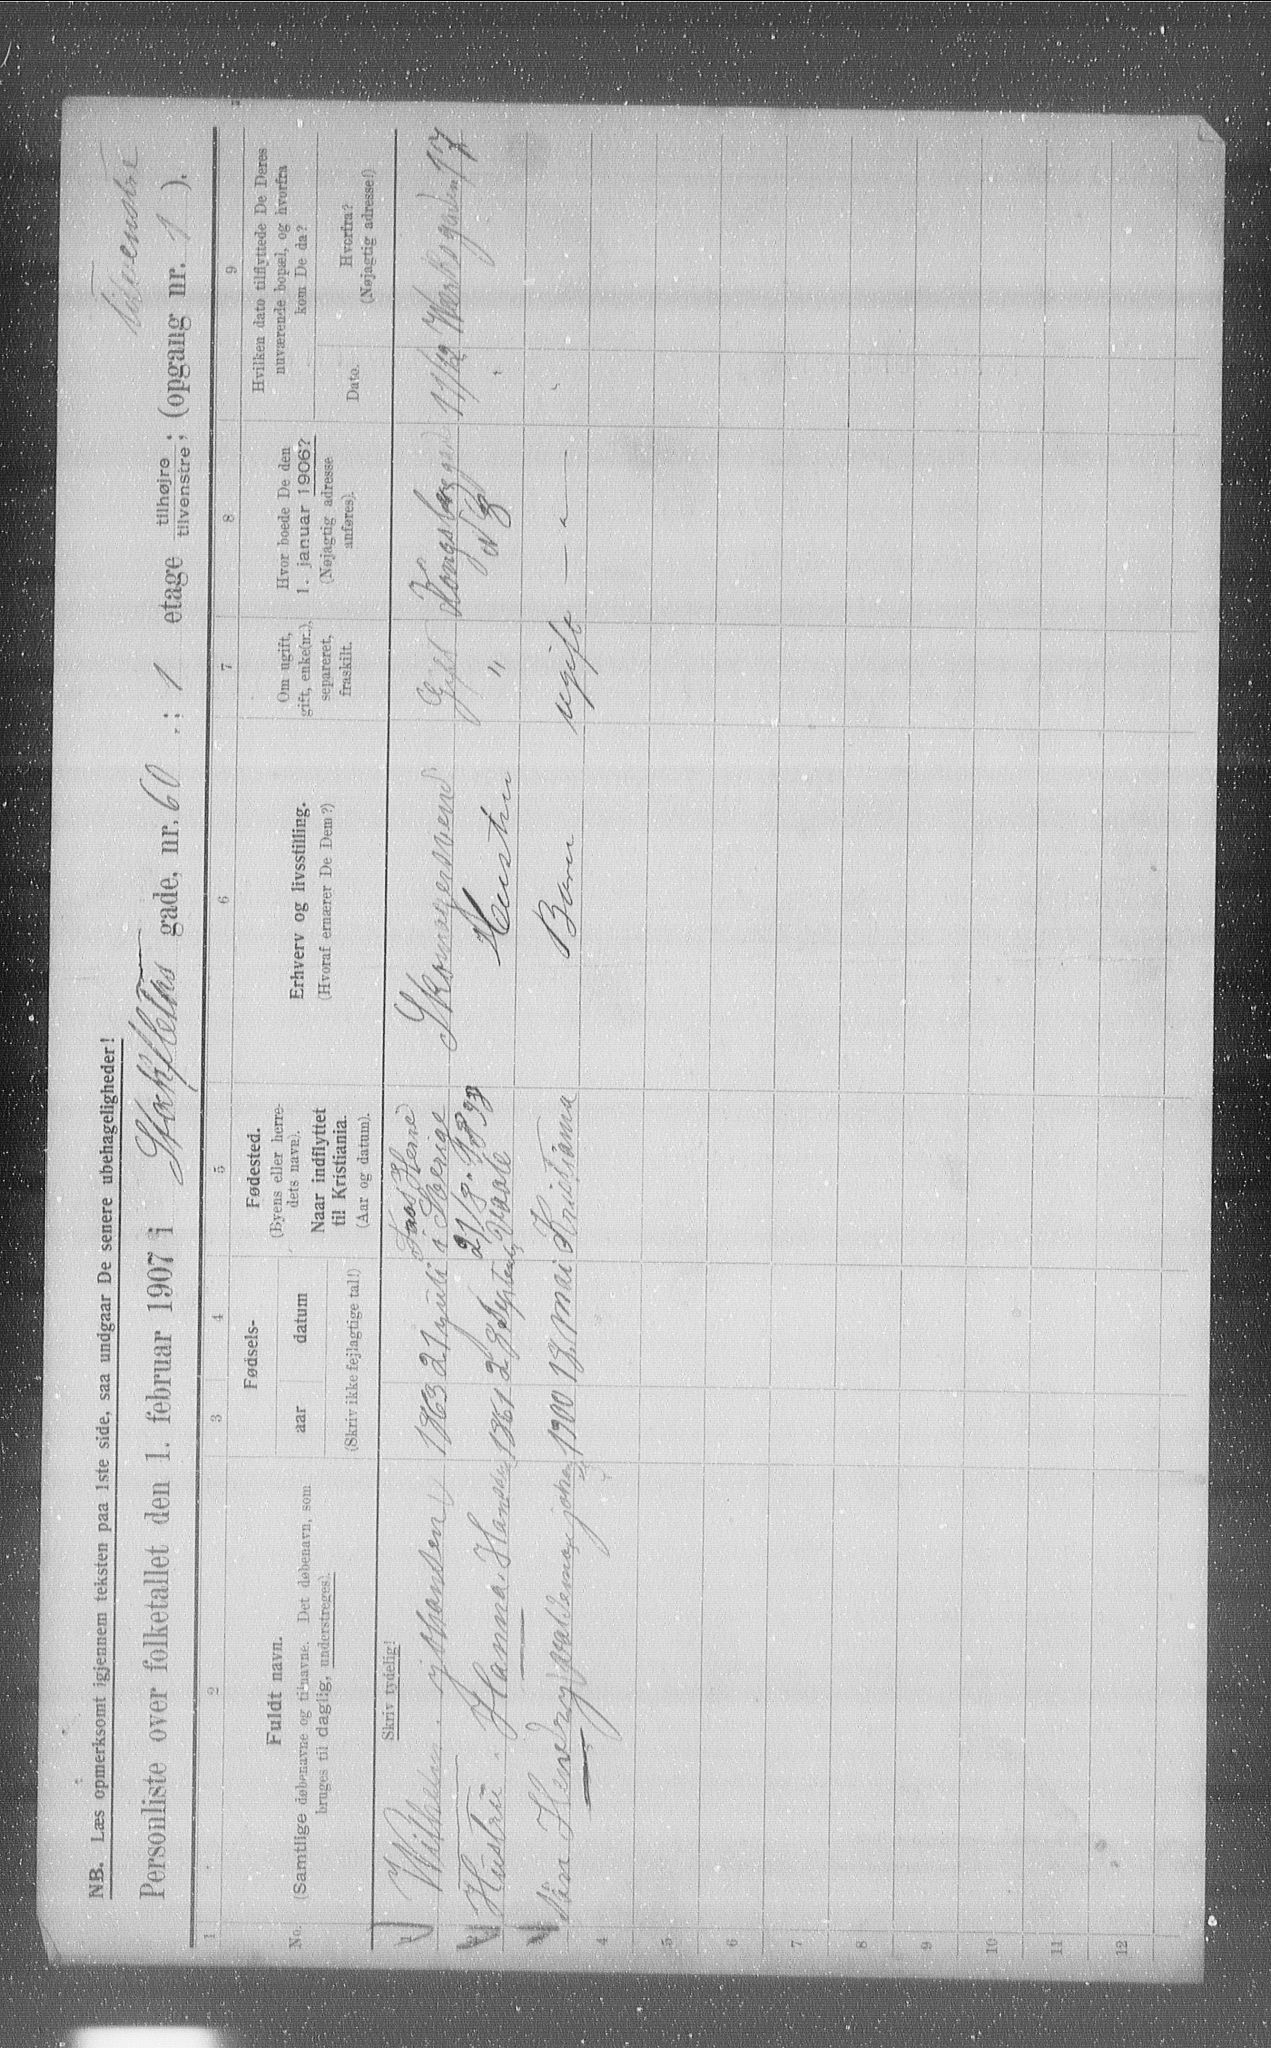 NB. Læs opmerksomt igjennem teksten paa 1ste side, saa undgaar De senere ubehageligheder!
tilvenstre
Personliste over folketallet den 1. februar 1907 i Stokfleths gade, nr. 60 : 1 etage tilhøjre tilvenstre; (opgang nr. 1 ).
1 2 3 4 5 6 7 8 9
No.
Fuldt navn.
(Samtlige døbenavne og tilnavne. Det døbenavn, som
bruges til daglig, understreges).
Fødsels-
aar datum
(Skriv ikke fejlagtige tal!)
Fødested.
(Byens eller herre-
dets navn).
Naar indflyttet
til Kristiania.
(Aar og datum).
Erhverv og livsstilling.
(Hvoraf ernærer De Dem?)
Om ugift,
gift, enke(nr.),
separeret,
fraskilt.
Hvor boede De den
1. januar 1906?
(Nøjagtig adresse
anføres).
Hvilken dato tilflyttede De Deres
nuværende bopæl, og hvorfra
kom De da?
Dato.
Hvorfra?
(Nøjagtig adresse!)
Skriv tydelig!
1 Wilhelm. johansen 1863 21 juli i Sverige Skomagersvend Gift 11/12 17
2 Hustru. Hanna. Hansen 1861 28 September Vaale Hustru " N 8 "
3 Søn Henry valdemar johan 1900 18 mai Kristiania Barn ugift — " — "
4
5
6
7
8
9
10
11
12